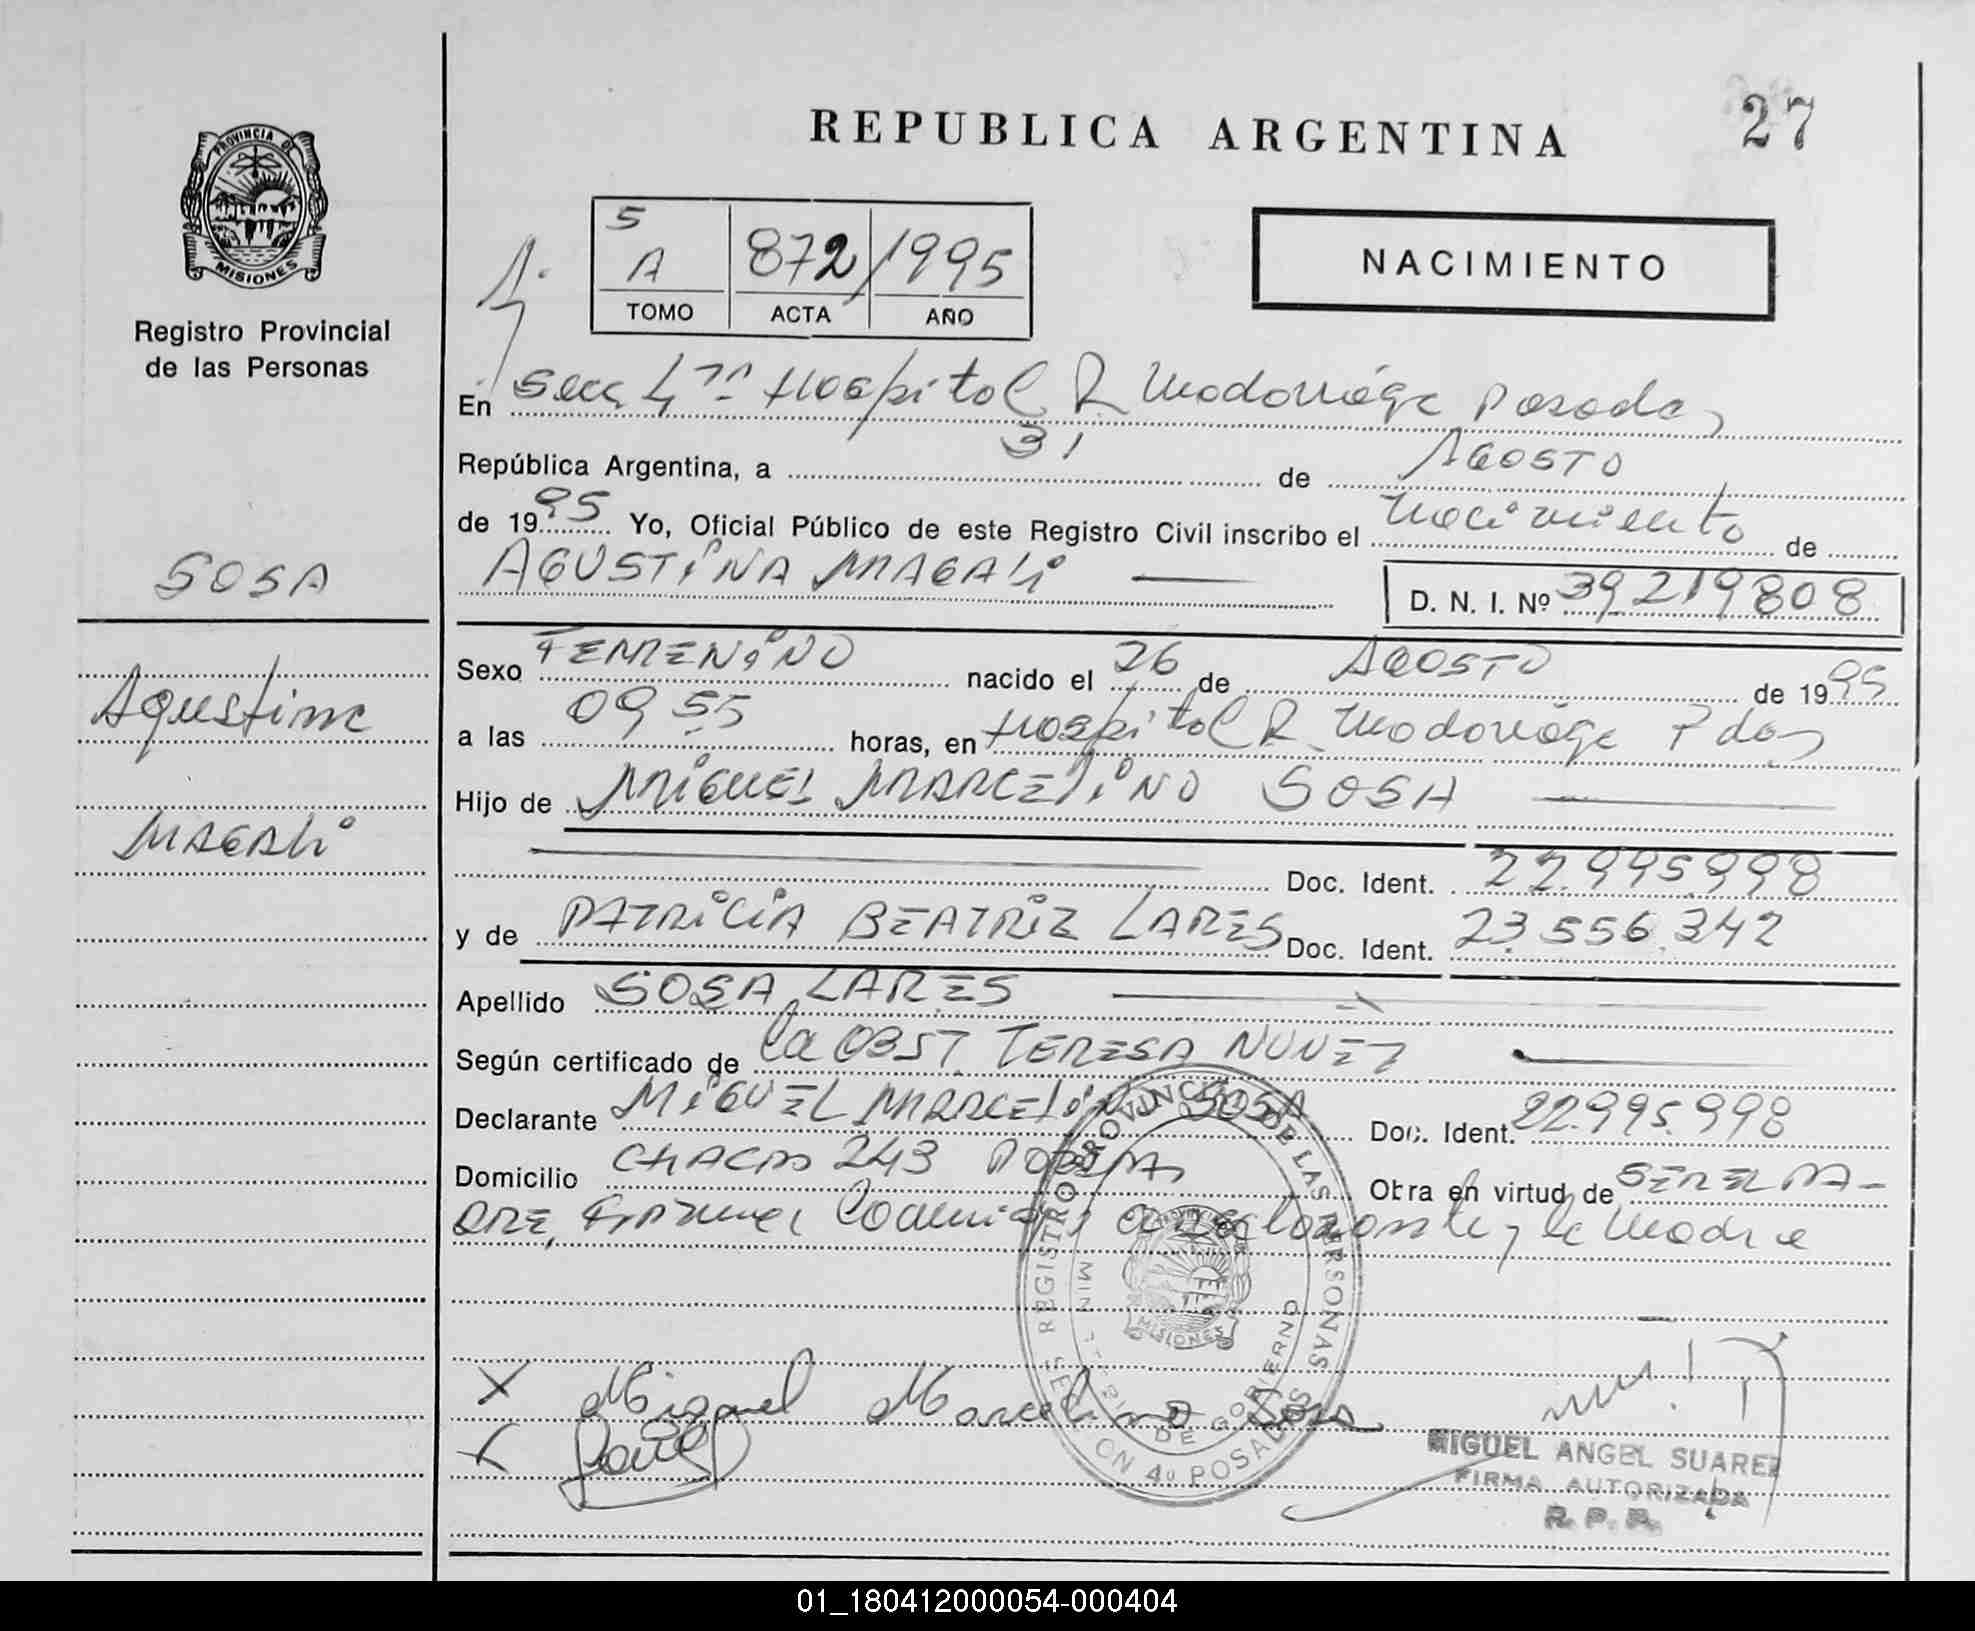 REPUBLICA ARGENTINA
27
PROVINCIA DE
MISIONES
Registro Provincial
de las Personas
5
A 872/1995
TOMO ACTA AÑO
NACIMIENTO
En Secc 4ta Hospital R Madariaga Posadas
República Argentina, a 31 de AGOSTO
de 1995 Yo, Oficial Público de este Registro Civil inscribo el nacimiento de
AGUSTINA MAGALI
D. N. I. Nº 39219808
SOSA
Agustina
MAGALI
Sexo FEMENINO nacido el 26 de AGOSTO de 1995
a las 09 55 horas, en Hospital R. Madariaga Pdas
Hijo de MIGUEL MARCELINO SOSA
Doc. Ident. 22.995.998
y de PATRICIA BEATRIZ LARES Doc. Ident. 23.556.342
Apellido SOSA LARES
Según certificado de la OBST TERESA NUNEZ
Declarante MIGUEL MARCELINO SOSA Doc. Ident. 22.995.998
Domicilio CHACO 243 Obra en virtud de SER EL PA-
DRE, el declarante y la madre
REGISTRO PROVINCIAL DE LAS PERSONAS
SECCION 4ª POSADAS
MINISTERIO DE GOBIERNO
MISIONES
X Miguel Marcelino Sosa
X
MIGUEL ANGEL SUAREZ
FIRMA AUTORIZADA
R. P. P.
01_180412000054-000404